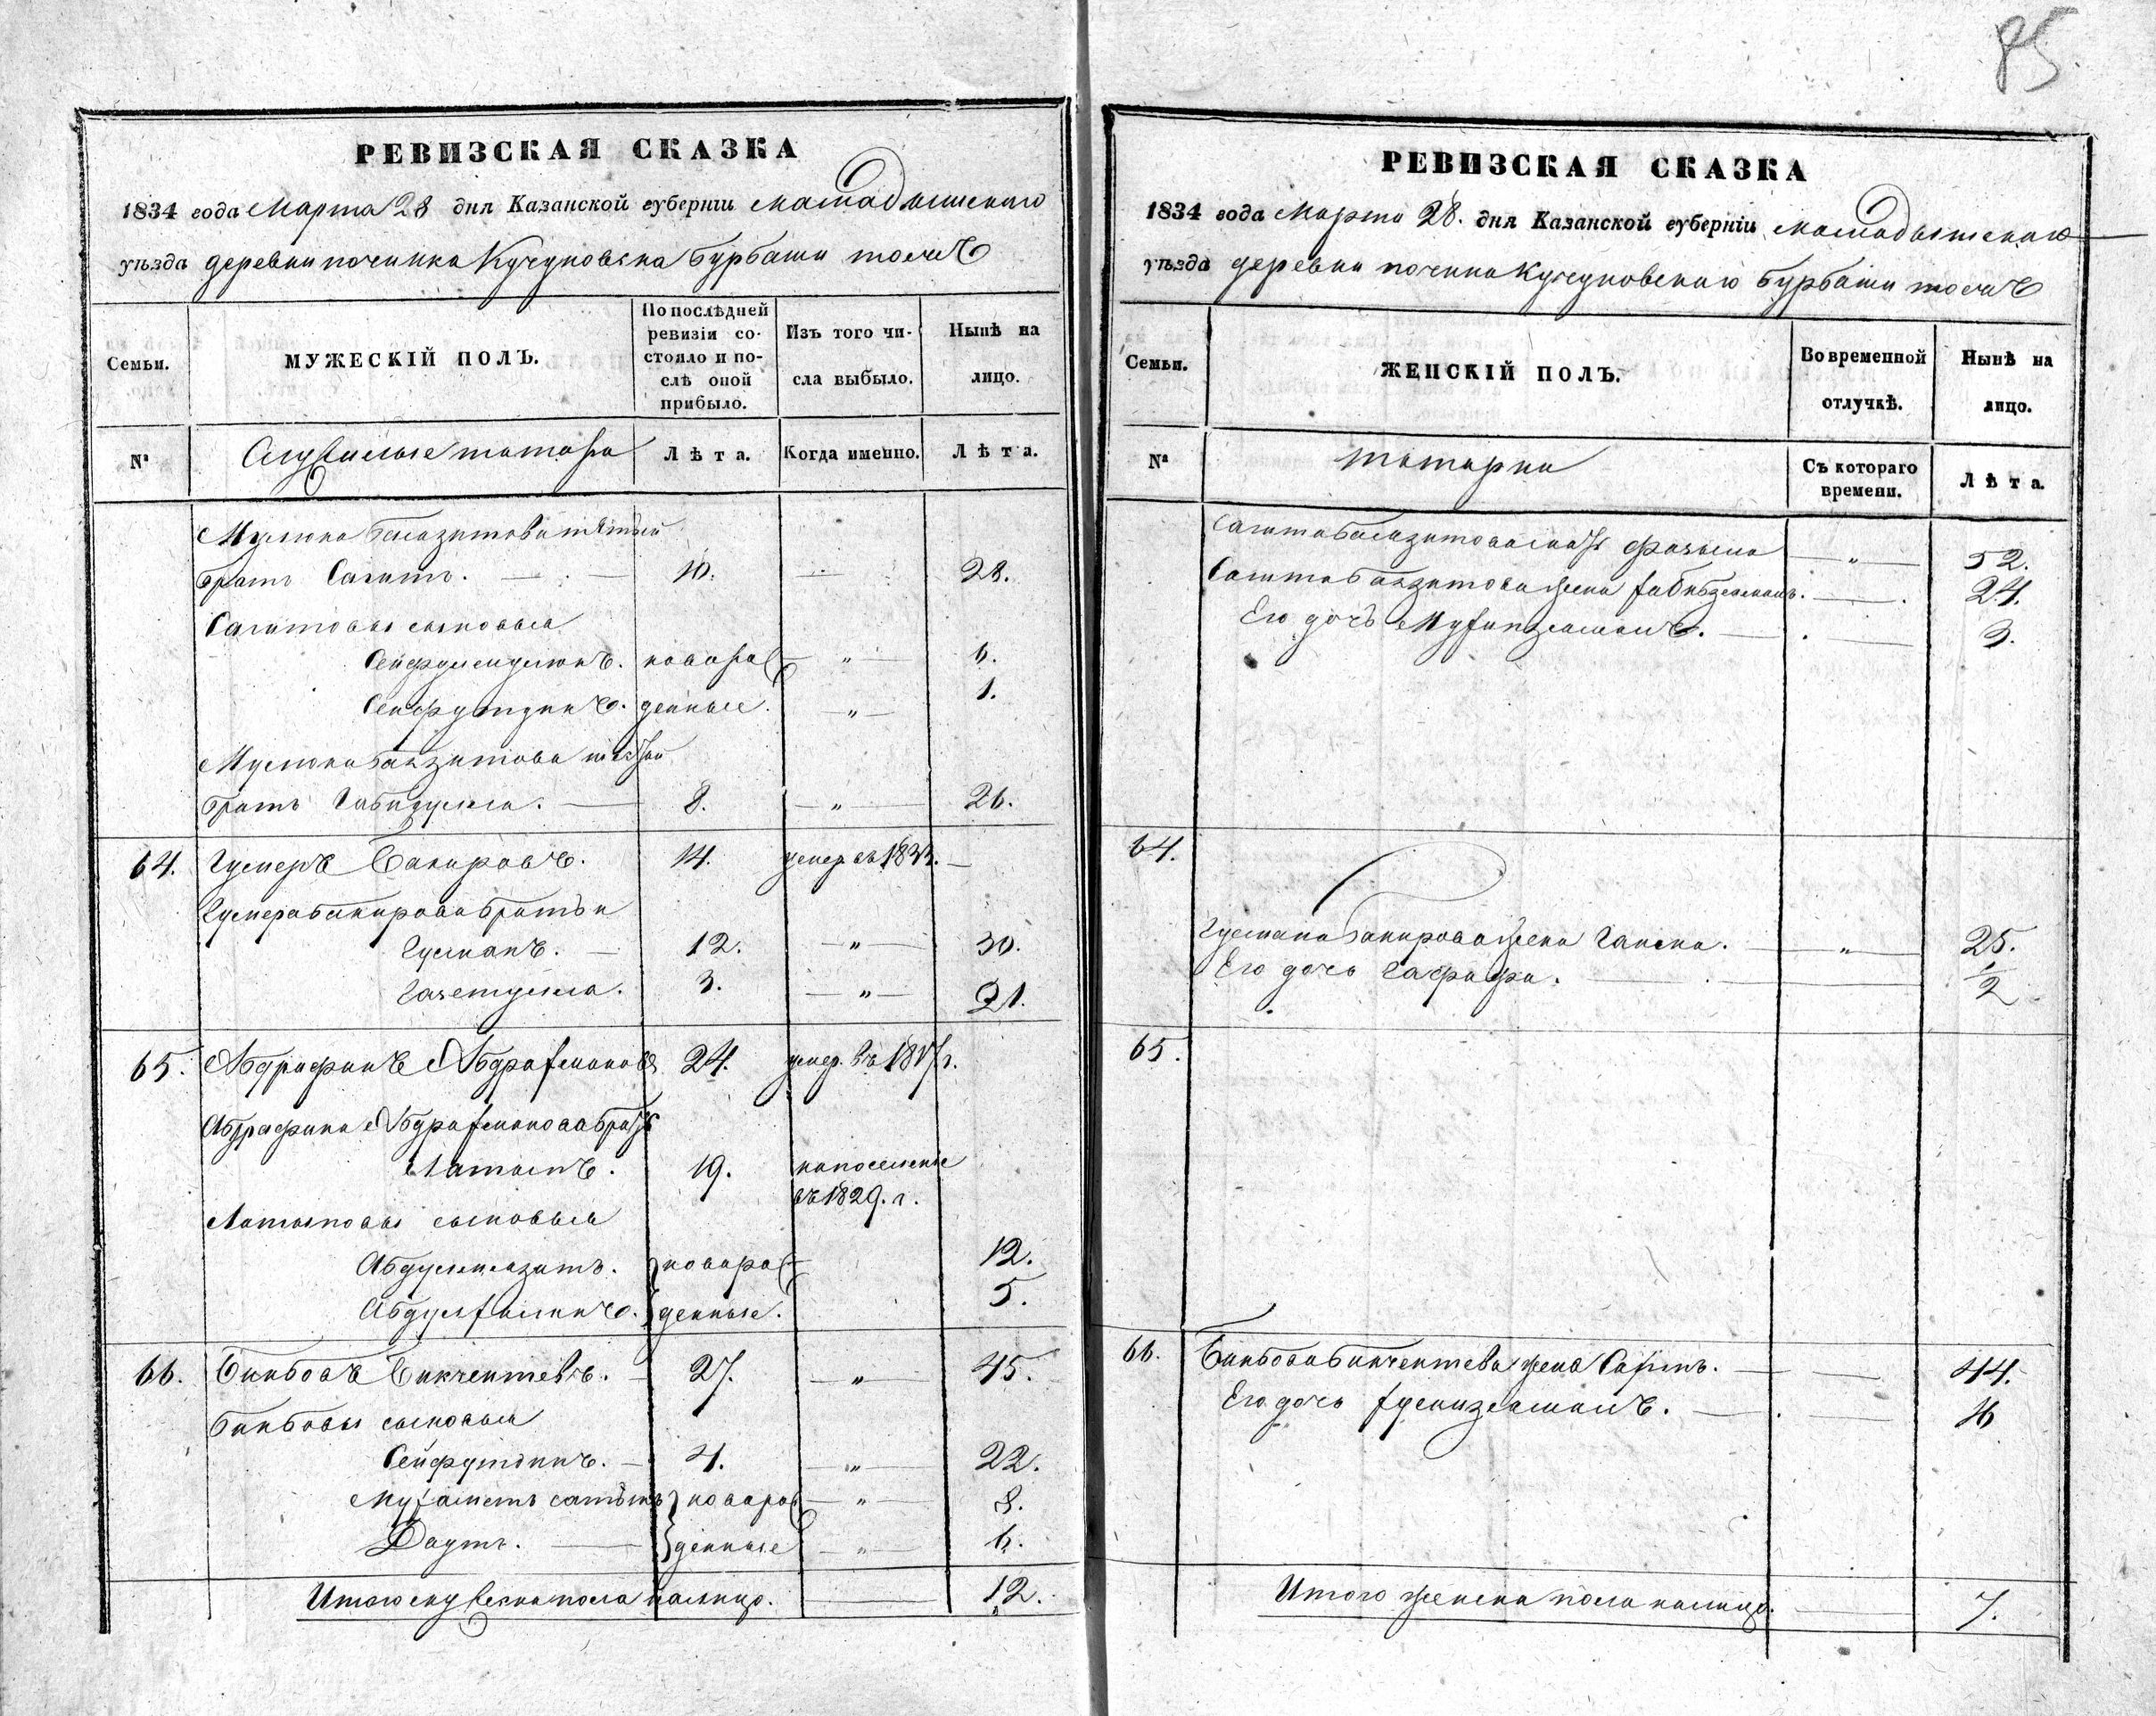 85
РЕВИЗСКАЯ СКАЗКА
1834 года Марта 28 дня Казанской губерніи Мамадышскаго
уѣзда деревни починка Кучуковска Бурбаши тожъ
Семьи.
МУЖЕСКІЙ ПОЛЪ.
По послѣдней ревизіи состояло и послѣ оной прибыло.
Изъ того числа выбыло.
Нынѣ на лицо.
№
Служилые татара
Лѣта.
Когда именно.
Лѣта.
Муслюма Баязитова
братъ Сагитъ. 10. 28.
Сагитовы сыновья
Сейфулмулюкъ. новорож 6.
Сейфутдинъ. денные. 1.
Муслюма Баязитова
братъ Габидулла. 8. " 26.
64. Гумеръ Бакировъ. 14. умер въ 1833.
Гумера Бакирова братья
Гусманъ. 12. " 30.
3. " 21.
65. Абдрафикъ Абдрахмановъ 24. умер. въ 18
Абдрафика Абдрахманова братъ
Латыпъ. 19. на поселенье
въ 1829. г.
Латыповы сыновья
новорож 12.
денные. 5.
66. Бикбовъ Бикчентевъ. 27. " 45.
Бикбовы сыновья
Сейфутдинъ. 4. " 22.
новорож " 8.
Даутъ. денные " 6.
Итого мужеска пола налицо. 12.
РЕВИЗСКАЯ СКАЗКА
1834 года Марта 28. дня Казанской губерніи Мамадышскаго
уѣзда деревни почина Кучуковскаго Бурбаши тожъ
Семьи.
ЖЕНСКІЙ ПОЛЪ.
Во временной отлучкѣ.
Нынѣ на лицо.
№
татарки
Съ котораго времени.
Лѣта.
" 52.
Сагита Баязитова жена 24.
Его дочь 3.
64.
Гусмана Бакирова жена " 25.
Его дочь 1/2
65.
66. Бикбова Бикчентева жена 44.
Его дочь
Итого женска пола налицо. 7.